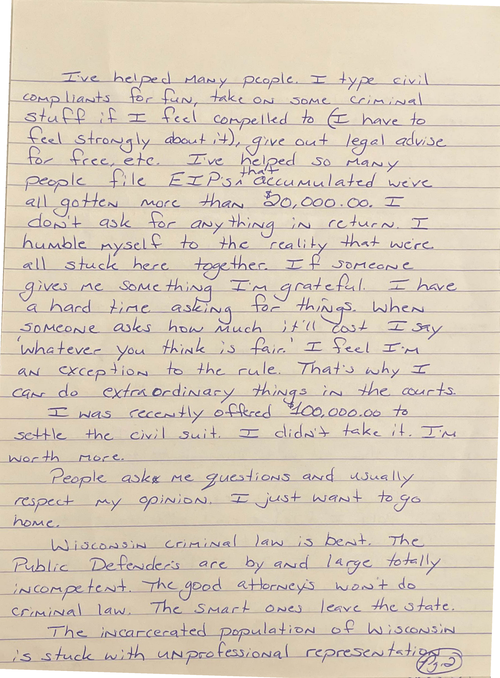 I've helped many people. I type civil
compliants for fun, take on some criminal
stuff if I feel compelled to (I have to
feel strongly about it), give out legal advise
for free, etc. I've helped so many
people file EIP's that accumulated we've
all gotten more than $20,000.00. I
don't ask for anything in return. I
humble myself to the reality that we're
all stuck here together. If someone
gives me something I'm grateful. I have
a hard time asking for things. When
someone asks how much it'll cost I say
'whatever you think is fair.' I feel I'm
an exception to the rule. That's why I
can do extraordinary things in the courts.
I was recently offered $100,000.00 to
settle the civil suit. I didn't take it. I'm
worth more.
People ask me questions and usually
respect my opinion. I just want to go
home.
Wisconsin criminal law is bent. The
Public Defender's are by and large totally
incompetent. The good attorney's won't do
criminal law. The smart ones leave the state.
The incarcerated population of Wisconsin
is stuck with unprofessional representation.
Pg. 2